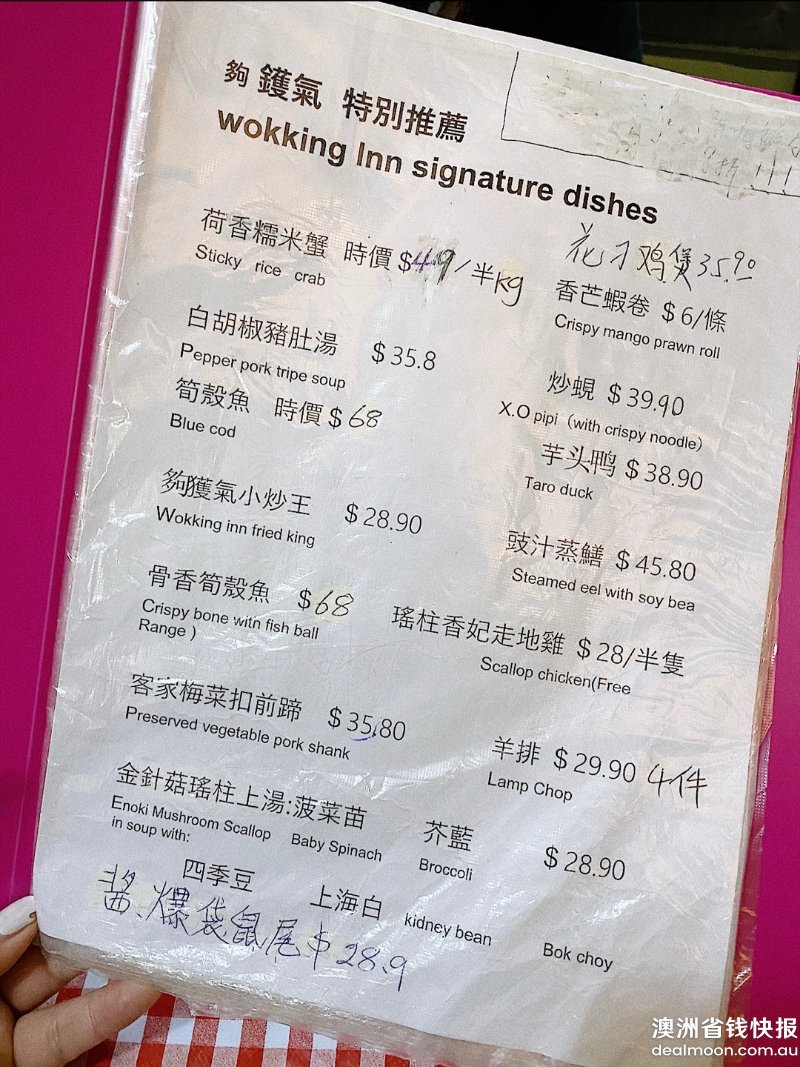 夠 鑊氣 特別推薦
wokking Inn signature dishes
荷香糯米蟹 時價 $49/半kg
Sticky rice crab
花刁鸡煲35.90
香芒蝦卷 $6/條
Crispy mango prawn roll
白胡椒豬肚湯 $35.8
Pepper pork tripe soup
炒蜆 $39.90
X.O pipi（with crispy noodle）
筍殼魚 時價$68
Blue cod
芋头鸭 $38.90
Taro duck
夠獲氣小炒王 $28.90
Wokking inn fried king
豉汁蒸鱔 $45.80
Steamed eel with soy bea
骨香筍殼魚 $68
Crispy bone with fish ball
Range )
瑤柱香妃走地雞 $28/半隻
Scallop chicken(Free
客家梅菜扣前蹄 $35.80
Preserved vegetable pork shank
羊排 $29.90 4件
Lamp Chop
金針菇瑤柱上湯:菠菜苗 芥藍 $28.90
Enoki Mushroom Scallop Baby Spinach Broccoli
in soup with:
四季豆 上海白 kidney bean Bok choy
酱爆袋鼠尾$28.9
澳洲省钱快报
dealmoon.com.au